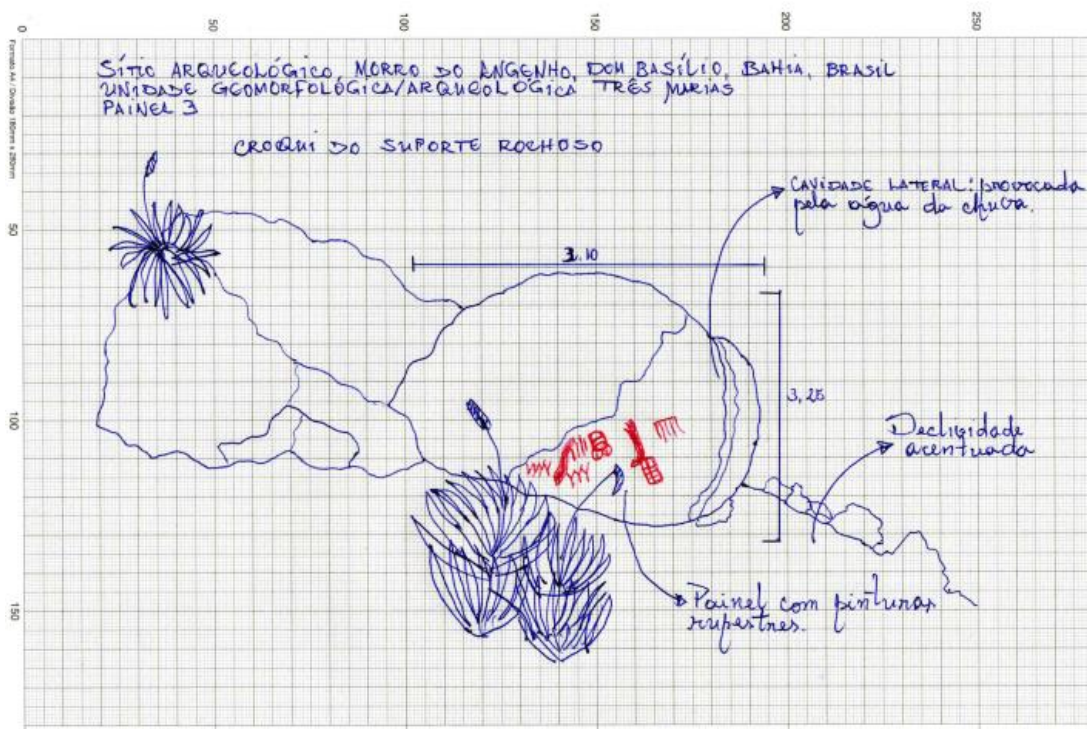 50
100
150
200
250
Formato A4 / Divisão 180mm x 280mm
SÍTIO ARQUEOLÓGICO, MORRO DO ENGENHO, DOM BASÍLIO, BAHIA, BRASIL
UNIDADE GEOMORFOLÓGICA/ARQUEOLÓGICA TRÊS MARIAS
PAINEL 3
CROQUI DO SUPORTE ROCHOSO
CAVIDADE LATERAL: provocada
pela água da chuva.
50
.10
3,25
100
Declividade
acentuada
Painel com pinturas
rupestres.
150